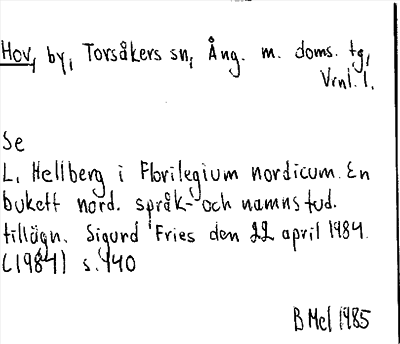 Hov, by, Torsåkers sn, Ång. m. doms. tg,
Vrnl. l.
Se
L. Hellberg i Florilegium nordicum. En
bukett nord. språk- och namnstud.
tillägn. Sigurd Fries den 22 april 1984.
(1984) s. 140
B Mel 1985